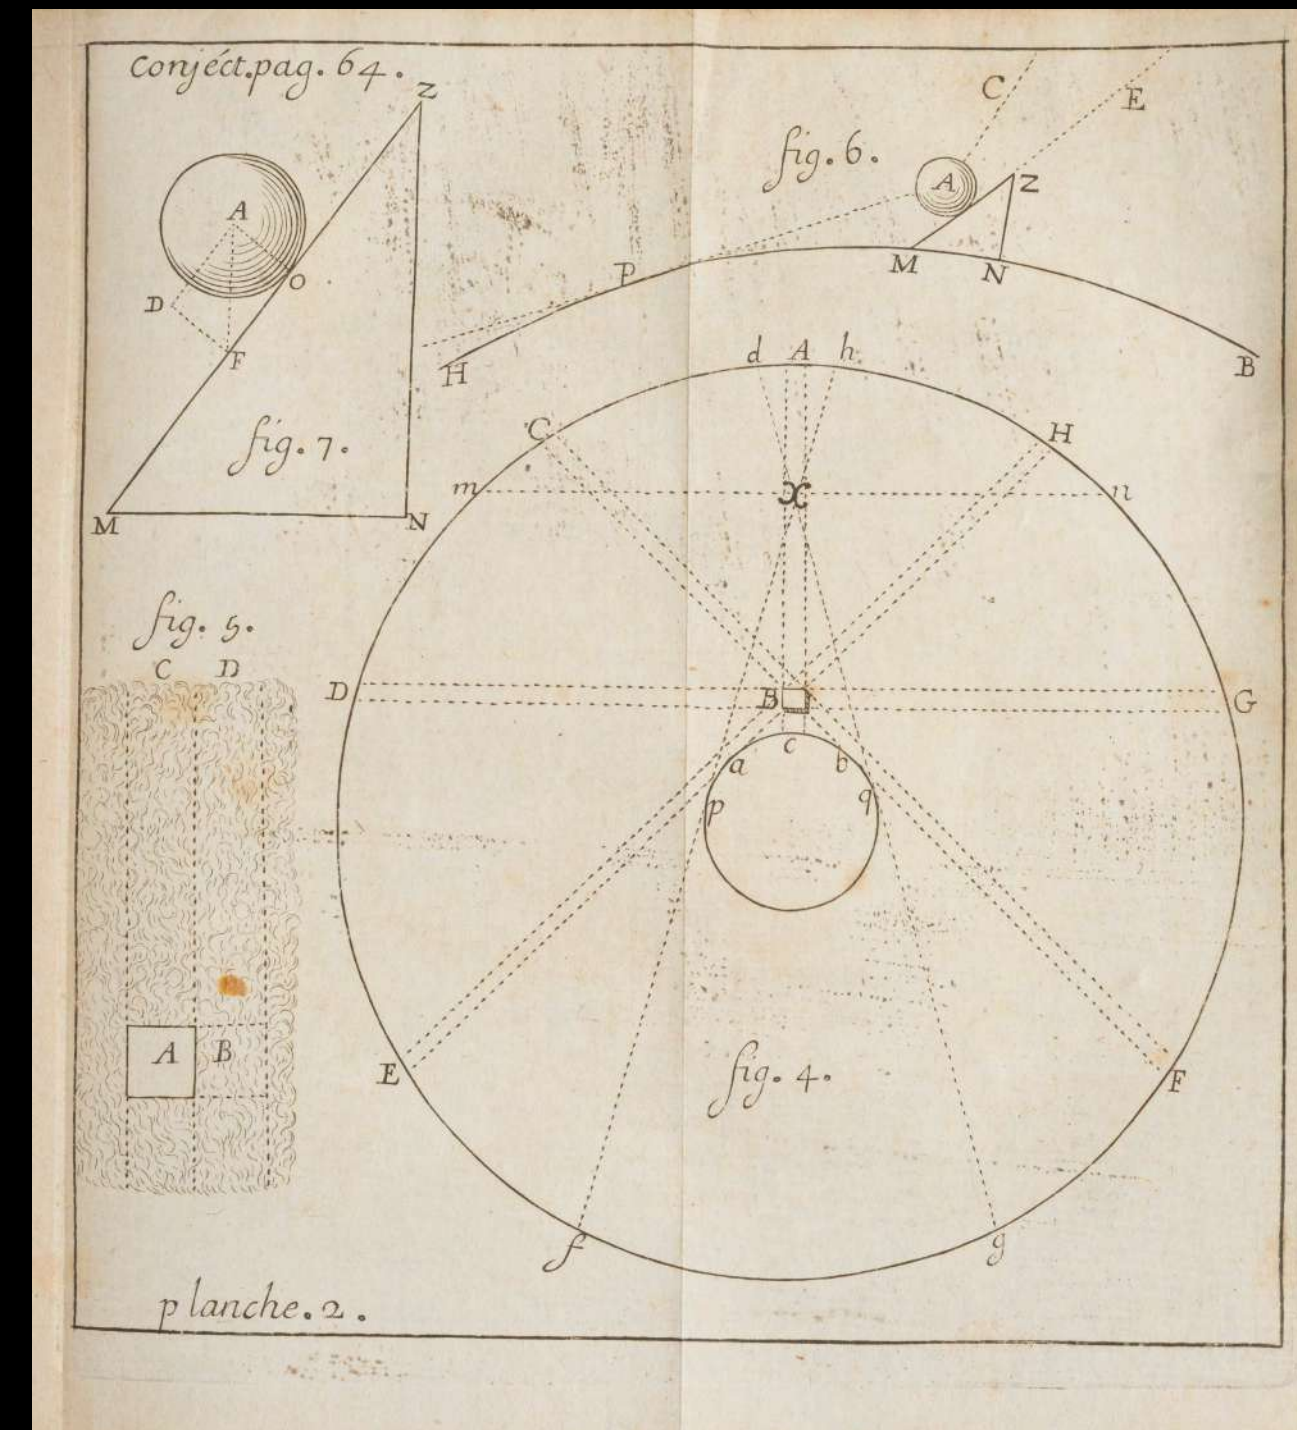 Conjéct. pag. 64.
Z
A
D
O
F
fig. 7.
M
N
fig. 6.
C
E
A
Z
P
M
N
H
B
fig. 5.
C D
A B
d A h
C
H
m
x
n
D
B
G
c
a
b
p
q
E
F
fig. 4.
f
g
planche. 2.